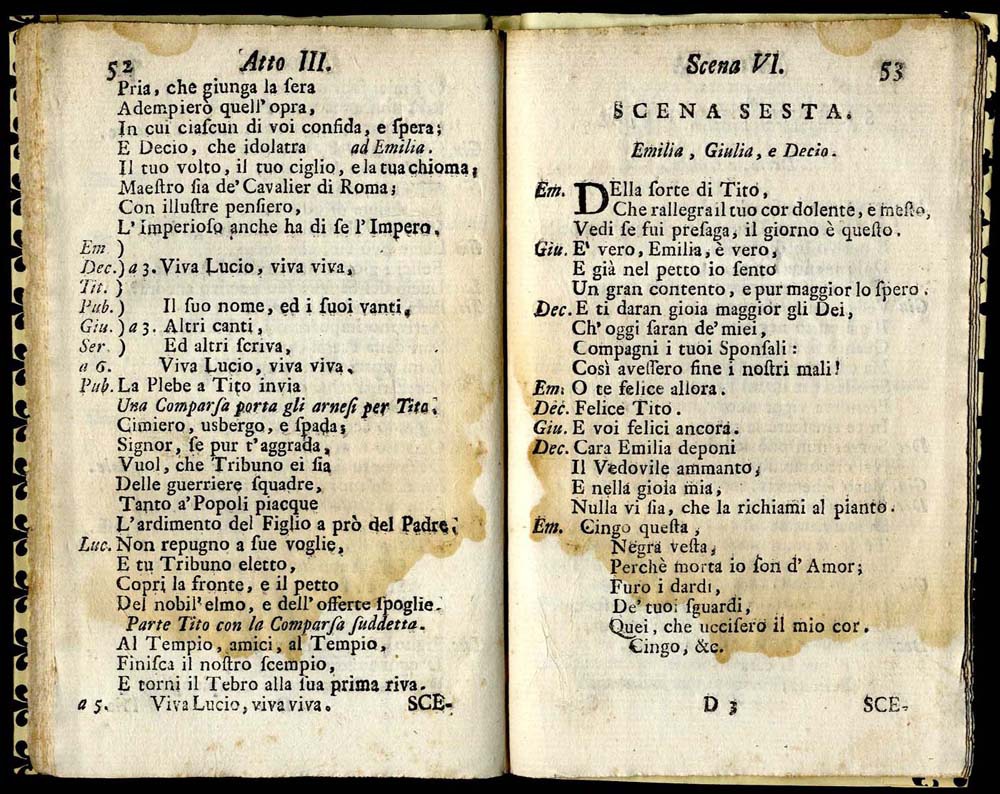 52 Atto III.
Pria, che giunga la ſera
Adempierò quell' opra,
In cui ciaſcun di voi confida, e ſpera;
E Decio, che idolatra ad Emilia.
Il tuo volto, il tuo ciglio, e la tua chioma,
Maeſtro ſia de' Cavalier di Roma;
Con illuſtre penſiero,
L' Imperioſo anche ha di ſe l' Impero.
Em )
Dec.) a 3. Viva Lucio, viva viva,
Tit. )
Pub. ) Il ſuo nome, ed i ſuoi vanti,
Giu. ) a 3. Altri canti,
Ser. ) Ed altri ſcriva,
a 6. Viva Lucio, viva viva.
Pub. La Plebe a Tito invia
Una Comparſa porta gli arneſi per Tito.
Cimiero, usbergo, e ſpada;
Signor, ſe pur t'aggrada,
Vuol, che Tribuno ei ſia
Delle guerriere ſquadre,
Tanto a' Popoli piacque
L'ardimento del Figlio a prò del Padre.
Luc. Non repugno a ſue voglie,
E tu Tribuno eletto,
Copri la fronte, e il petto
Del nobil'elmo, e dell' offerte ſpoglie.
Parte Tito con la Comparſa ſuddetta.
Al Tempio, amici, al Tempio,
Finiſca il noſtro ſcempio,
E torni il Tebro alla ſua prima riva.
a 5. Viva Lucio, viva viva. SCE-
Scena VI. 53
SCENA SESTA.
Emilia, Giulia, e Decio.
Em. DElla ſorte di Tito,
Che rallegra il tuo cor dolente, e meſto,
Vedi ſe fui preſaga, il giorno è queſto.
Giu. E' vero, Emilia, è vero,
E già nel petto io ſento
Un gran contento, e pur maggior lo ſpero.
Dec. E ti daran gioia maggior gli Dei,
Ch' oggi ſaran de' miei,
Compagni i tuoi Sponſali:
Così aveſſero fine i noſtri mali!
Em. O te felice allora.
Dec. Felice Tito.
Giu. E voi felici ancora.
Dec. Cara Emilia deponi
Il Vedovile ammanto,
E nella gioia mia,
Nulla vi ſia, che la richiami al pianto.
Em. Cingo queſta,
Negra veſta,
Perchè morta io ſon d' Amor;
Furo i dardi,
De' tuoi ſguardi,
Quei, che ucciſero il mio cor.
Cingo, &c.
D 3 SCE-